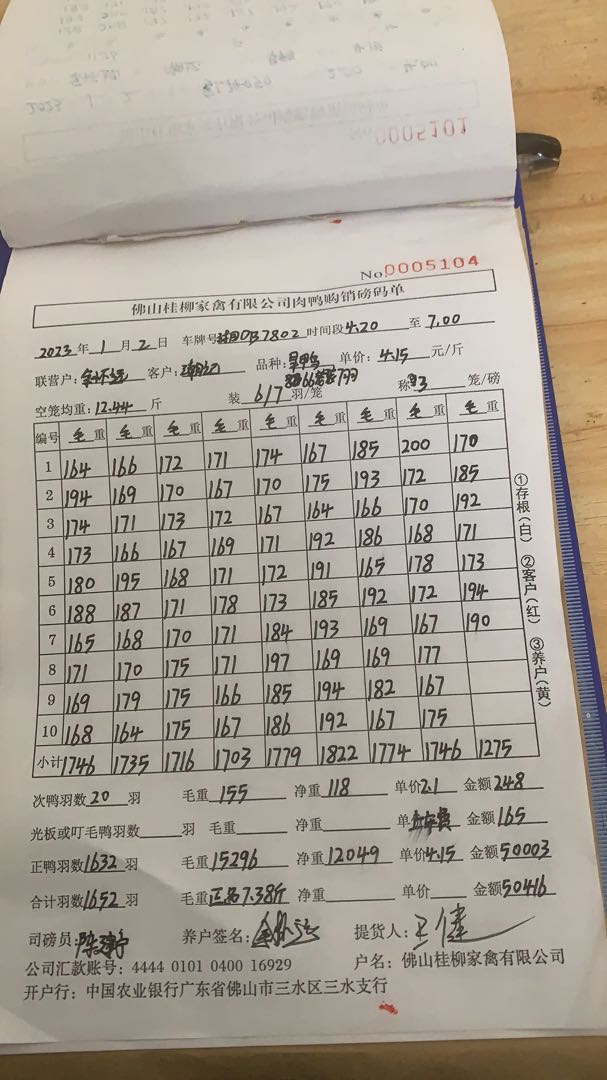 0005101
No 0005104
佛山桂柳家禽有限公司肉鸭购销磅码单
2023 年 1 月 2 日 车牌号 37802 时间段 4.20 至 7.00
联营户: 客户: 品种: 单价: 4.15 元/斤
空笼均重: 12.44 斤 装 6/7 羽/笼 称 3 笼/磅
编号 毛重 毛重 毛重 毛重 毛重 毛重 毛重 毛重 毛重
1 164 166 172 171 174 167 185 200 170
2 194 169 170 167 170 175 193 172 185
3 174 171 173 172 167 164 166 170 192
4 173 166 167 169 171 192 186 168 171
5 180 195 168 171 172 191 165 178 173
6 188 187 171 178 173 185 192 172 194
7 165 168 170 171 184 193 169 167 190
8 171 170 175 171 197 169 169 177
9 169 179 175 166 185 194 182 167
10 168 164 175 167 186 192 167 175
小计 1746 1735 1716 1703 1779 1822 1774 1746 1275
次鸭羽数 20 羽 毛重 155 净重 118 单价 2.1 金额 248
光板或叮毛鸭羽数 羽 毛重 净重 单 金额 165
正鸭羽数 1632 羽 毛重 15296 净重 12049 单价 4.15 金额 50003
合计羽数 1652 羽 毛重 正品7.38斤 净重 单价 金额 50416
司磅员: 养户签名: 提货人: 王健
公司汇款账号: 4444 0101 0400 16929 户名: 佛山桂柳家禽有限公司
开户行: 中国农业银行广东省佛山市三水区三水支行
①存根(白) ②客户(红) ③养户(黄)